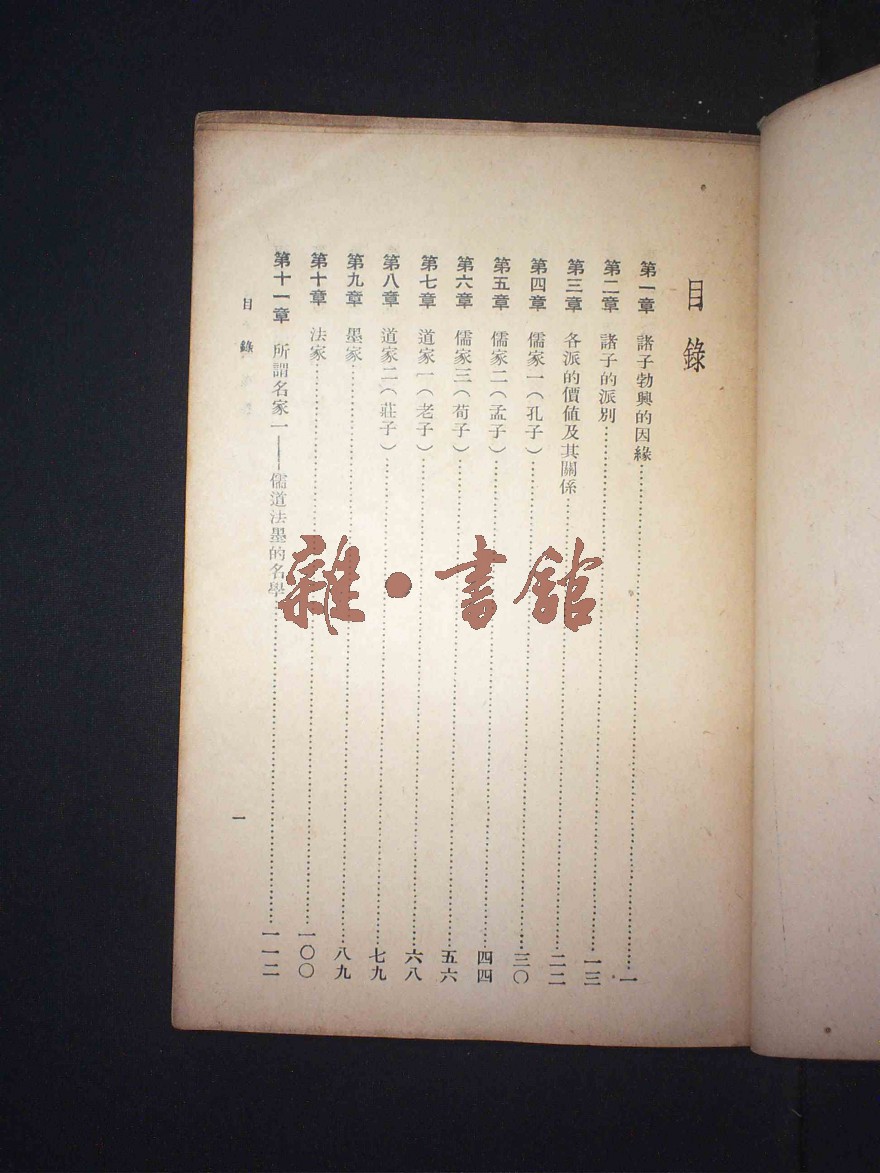 目錄
第一章 諸子勃興的因緣……一
第二章 諸子的派別……一三
第三章 各派的價值及其關係……二二
第四章 儒家一(孔子)……三〇
第五章 儒家二(孟子)……四四
第六章 儒家三(荀子)……五六
第七章 道家一(老子)……六八
第八章 道家二(莊子)……七九
第九章 墨家……八九
第十章 法家……一〇〇
第十一章 所謂名家一——儒道法墨的名學……一一二
目錄
一
雜·書館